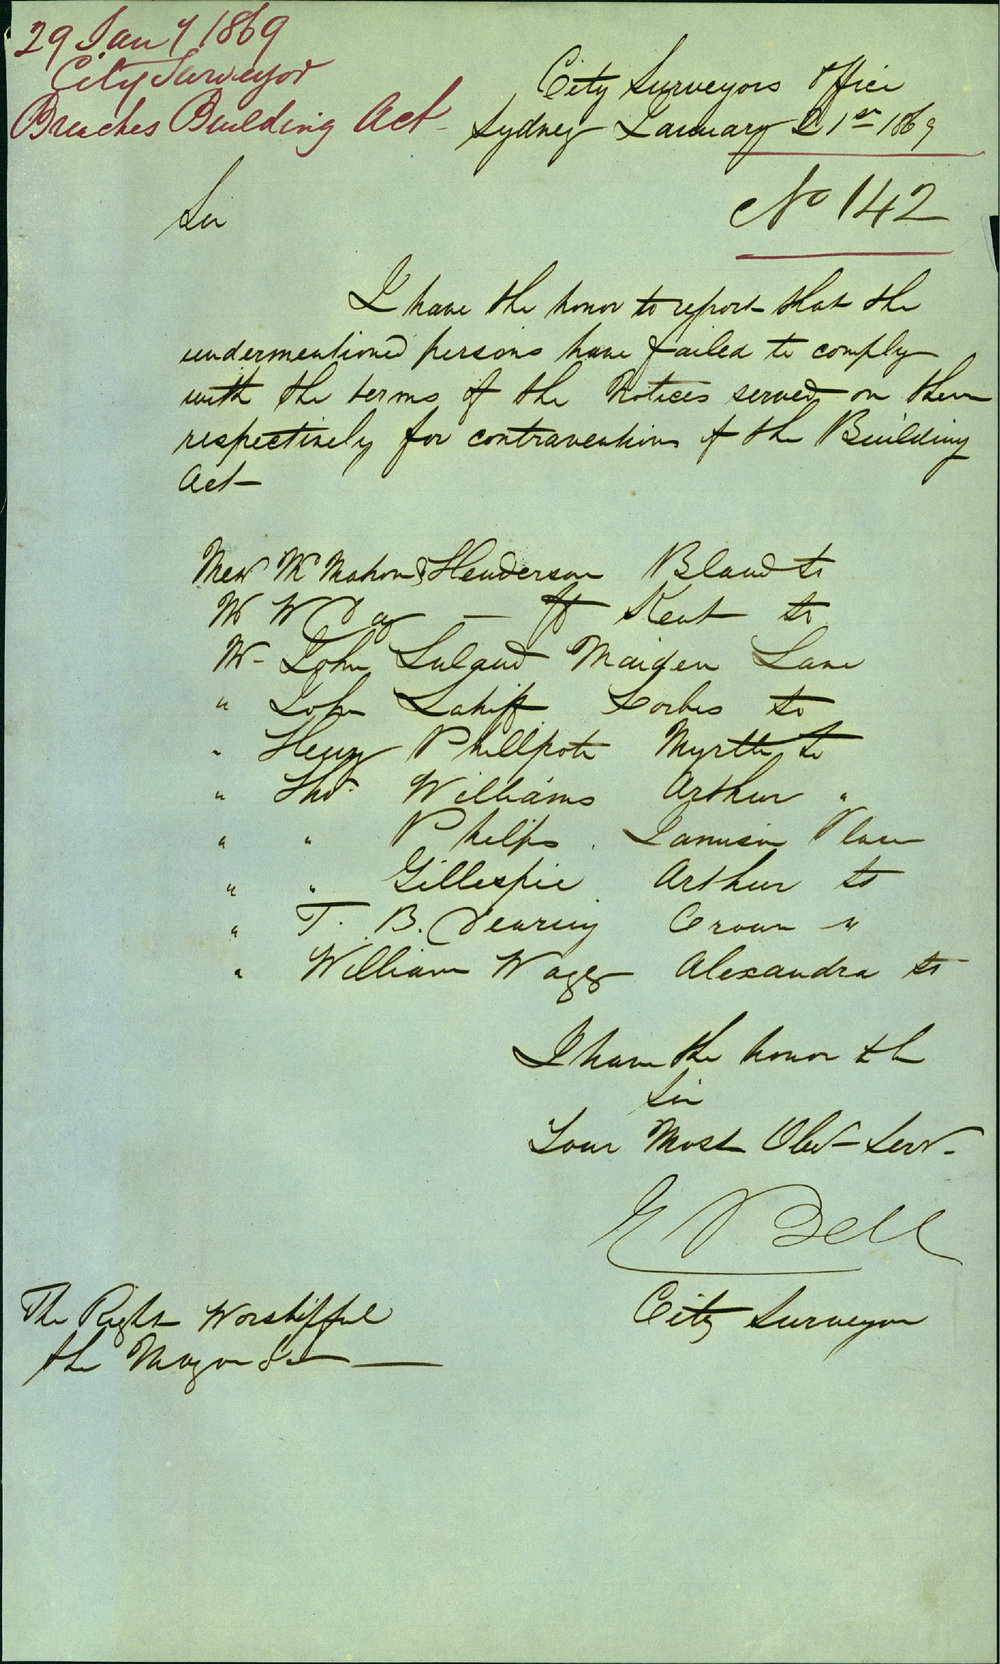 29 Jany 1869
City Surveyor
Breaches Building Act
City Surveyors Office
Sydney January 21st 1869
No 142
Sir
I have the honor to report that the
undermentioned persons have failed to comply
with the terms of the Notices served on them
respectively for contraventions of the Building
Act
Messrs McMahon & Henderson Bland St
Mr W Day Kent St
Mr John Maiden Lane
" John Lahiff Forbes St
" Henry Phillpott Myrtle St
" Thos Williams Arthur "
" " Phelps Jamison Place
" " Gillespie Arthur St
" T. B. Dearing Crown "
" William Wagg Alexandra St
I have the honor
Sir
Your Most Obdt Servt
E Bell
City Surveyor
The Right Worshipful
the Mayor &c